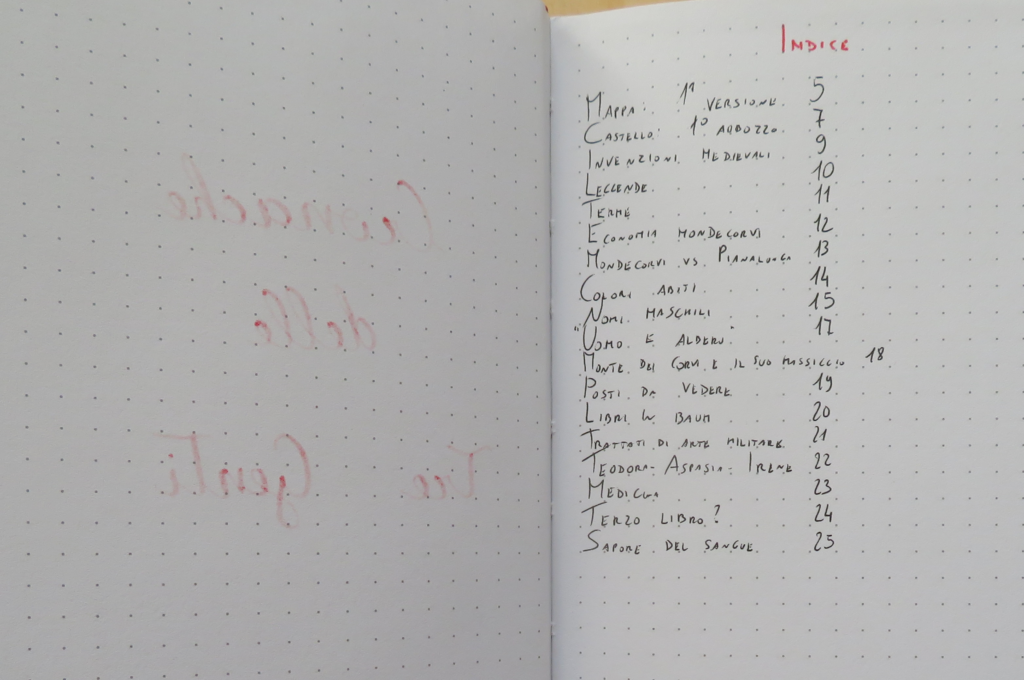 Cronache
delle
Tre Genti
INDICE
MAPPA: 1ª VERSIONE 5
CASTELLO: 1º ABBOZZO 7
INVENZIONI MEDIEVALI 9
LEGGENDE 10
TERME 11
ECONOMIA MONDECORVI 12
MONDECORVI VS PIANALUNGA 13
COLORI ABITI 14
NOMI MASCHILI 15
"UOMO E ALBERO" 17
MONTE DEI CORVI E IL SUO MASSICCIO 18
POSTI DA VEDERE 19
LIBRI 20
TRATTATI DI ARTE MILITARE 21
TEODORA - ASPASIA - IRENE 22
MEDICINA 23
TERZO LIBRO? 24
SAPORE DEL SANGUE 25